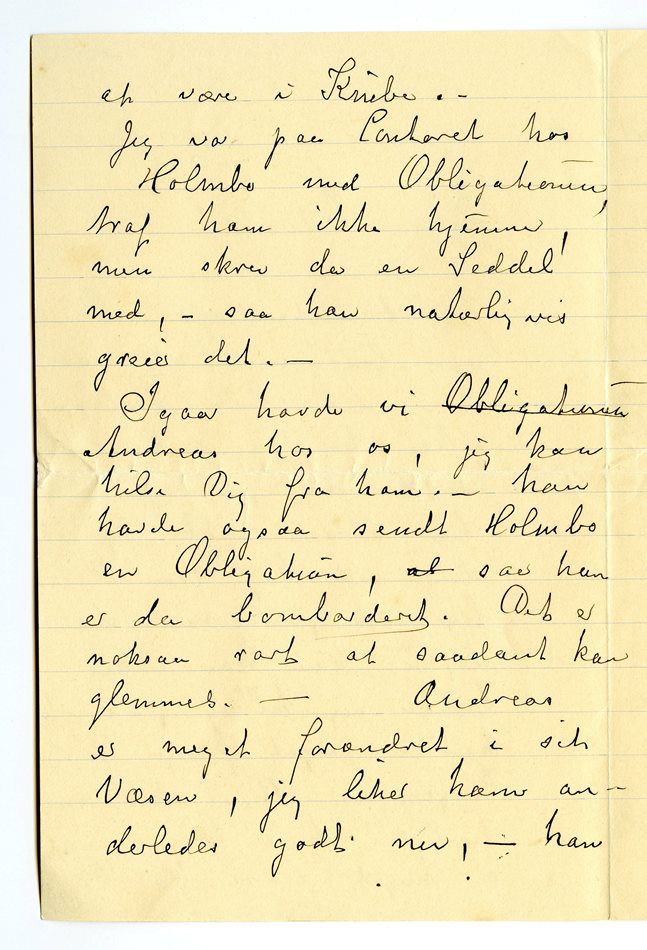 at være i Knibe. –
Jeg var paa Contoret hos
Holmbo med Obligationen,
traf ham ikke hjemme,
men skrev da en Seddel
med, – saa han naturligvis
greier det. –
Igaar havde vi Obligationen
Andreas hos os, jeg kan
hilse Dig fra ham. – han
havde ogsaa sendt Holmbo
en Obligation, at saa han
er da bombarderet. Det er
noksaa rart at saadant kan
glemmes. – Andreas
er meget forandret i sit
Væsen, jeg liker ham an-
derledes godt nu, – han